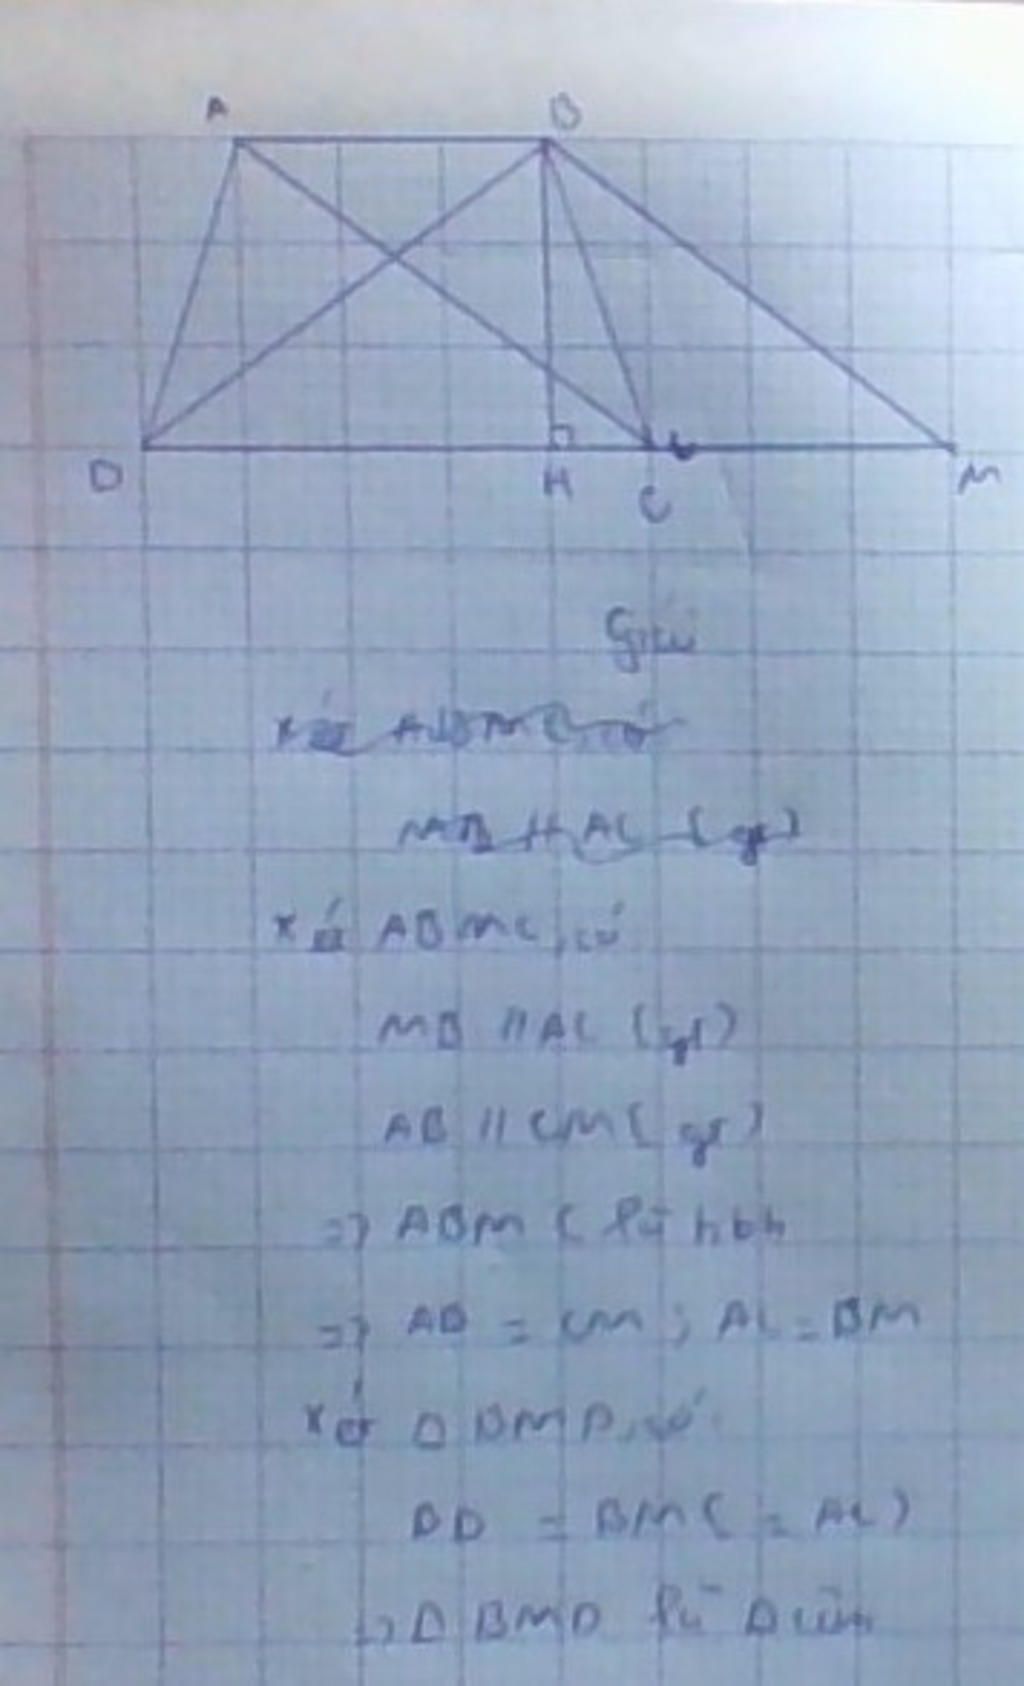 A B
D H C M
Giải
xét ABMC, có
MB // AC (gt)
xét ABMC, có
MB // AC (gt)
AB // CM (gt)
=> ABMC là hbh
=> AB = CM ; AC = BM
xét Δ BMD, có
BD = BM ( = AC )
=> Δ BMD là Δ cân